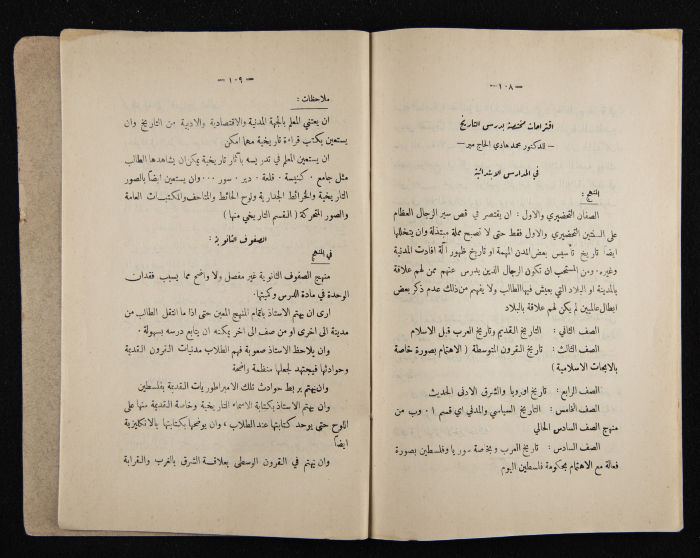 — ١٠٨ —
اقتراحات مختصة بدرس التاريخ
— للدكتور محمد هادي الحاج مير —
في المدارس الابتدائية
المنهج :
الصفان التحضيري والاول : ان يقتصر في قص سير الرجال العظام
على السنتين التحضيري والاول فقط حتى لا تصبح مملة مبتذلة وان يتخللها
ايضاً تاريخ تأسيس بعض المدن المهمة او تاريخ ظهور آلة افادت المدنية
وغيره. ومن المستحب ان تكون الرجال الذين يدرس عنهم ممن لهم علاقة
بالمدينة او البلاد التي يعيش فيها الطالب ولا يفهم من ذلك عدم ذكر بعض
ابطال عالميين لم يكن لهم علاقة بالبلاد
الصف الثاني : التاريخ القديم وتاريخ العرب قبل الاسلام
الصف الثالث : تاريخ القرون المتوسطة ( الاهتمام بصورة خاصة
بالابحاث الاسلامية )
الصف الرابع : تاريخ اوروبا والشرق الادنى الحديث
الصف الخامس : التاريخ السياسي والمدني اي قسم ا . وب من
منهج الصف السادس الحالي
الصف السادس : تاريخ العرب وبخاصة سوريا وفلسطين بصورة
فعالة مع الاهتمام بحكومة فلسطين اليوم
— ١٠٩ —
ملاحظات :
ان يعتني المعلم بالجهة المدنية والاقتصادية والادبية من التاريخ وان
يستعين بكتب قراءة تاريخية مهما امكن
ان يستعين المعلم في تدريسه بآثار تاريخية يمكن ان يشاهدها الطالب
مثل جامع . كنيسة . قلعة . دير . سور ... وان يستعين ايضاً بالصور
التاريخية والخرائط الجدارية ولوح الحائط والمتاحف والمكتبات العامة
والصور المتحركة ( القسم التاريخي منها )
الصفوف الثانوية :
في المنهج
منهج الصفوف الثانوية غير مفصل ولا واضح مما يسبب فقدان
الوحدة في مادة الدرس وكيتها.
ارى ان يهتم الاستاذ باتمام المنهج المعين حتى اذا ما انتقل الطالب من
مدينة الى اخرى او من صف الى اخر يمكنه ان يتابع درسه بسهولة .
وان يلاحظ الاستاذ صعوبة فهم الطلاب مدنيات القرون القديمة
وحوادثها فيجتهد لجعلها منظمة واضحة
وان يهتم بربط حوادث تلك الامبراطوريات القديمة بفلسطين
وان يهتم الاستاذ بكتابة الاسماء التاريخية وخاصة القديمة منها على
اللوح حتى يوحد كتابتها عند الطلاب ، وان يوضحها بكتابتها بالانكليزية
ايضاً
وان يهتم في القرون الوسطى بعلاقة الشرق بالغرب والقرابة